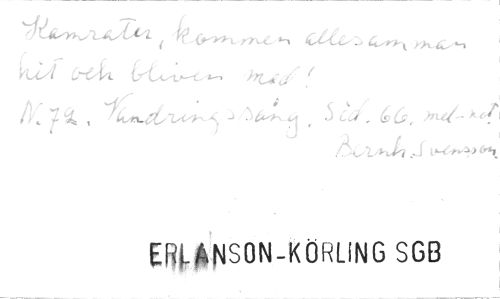 Kamrater, kommen allesamman
hit och bliven med!
N. 72. Vandringssång. Sid. 66. mel-not.
Bernh. Svensson.
ERLANSON-KÖRLING SGB